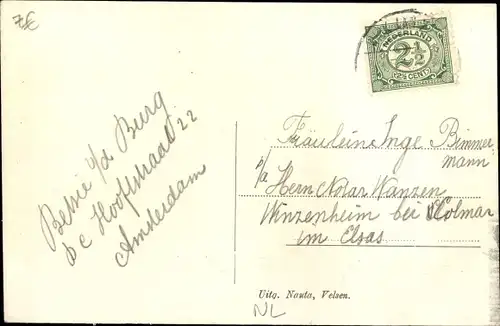 7€
NEDERLAND
2½
(2½ CENT)
Bessie v/d Burg
P C Hooftstraat 22
Amsterdam
Fräulein Inge Bimmer
mann
p/a Herrn Notar Wanzen
Winzenheim bei Colmar
im Elsas
Uitg. Nauta, Velsen.
NL